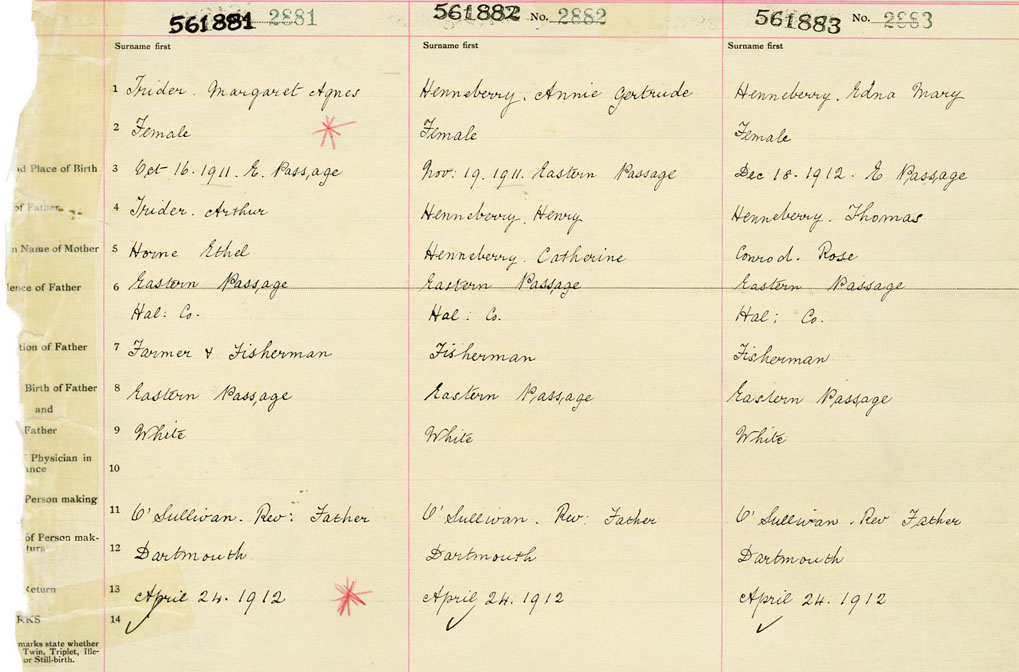 561881 2881 561882 No. 2882 561883 No. 2883
Surname first Surname first Surname first
1 Trider. Margaret Agnes Henneberry. Annie Gertrude Henneberry. Edna Mary
2 Female Female Female
Place of Birth 3 Oct 16. 1911. E. Passage Nov: 19. 1911. Eastern Passage Dec 18. 1912. E Passage
of Father 4 Trider. Arthur Henneberry. Henry Henneberry. Thomas
Name of Mother 5 Horne Ethel Henneberry. Catherine Conrod. Rose
ence of Father 6 Eastern Passage Eastern Passage Eastern Passage
Hal: Co. Hal: Co. Hal: Co.
tion of Father 7 Farmer & Fisherman Fisherman Fisherman
Birth of Father 8 Eastern Passage Eastern Passage Eastern Passage
and
Father 9 White White White
Physician in
ance 10
Person making
11 O'Sullivan. Rev: Father O'Sullivan. Rev: Father O'Sullivan. Rev Father
of Person mak-
12 Dartmouth Dartmouth Dartmouth
eturn 13 April 24. 1912 April 24. 1912 April 24. 1912
RKS 14
marks state whether
Twin, Triplet, Ille-
or Still-birth.